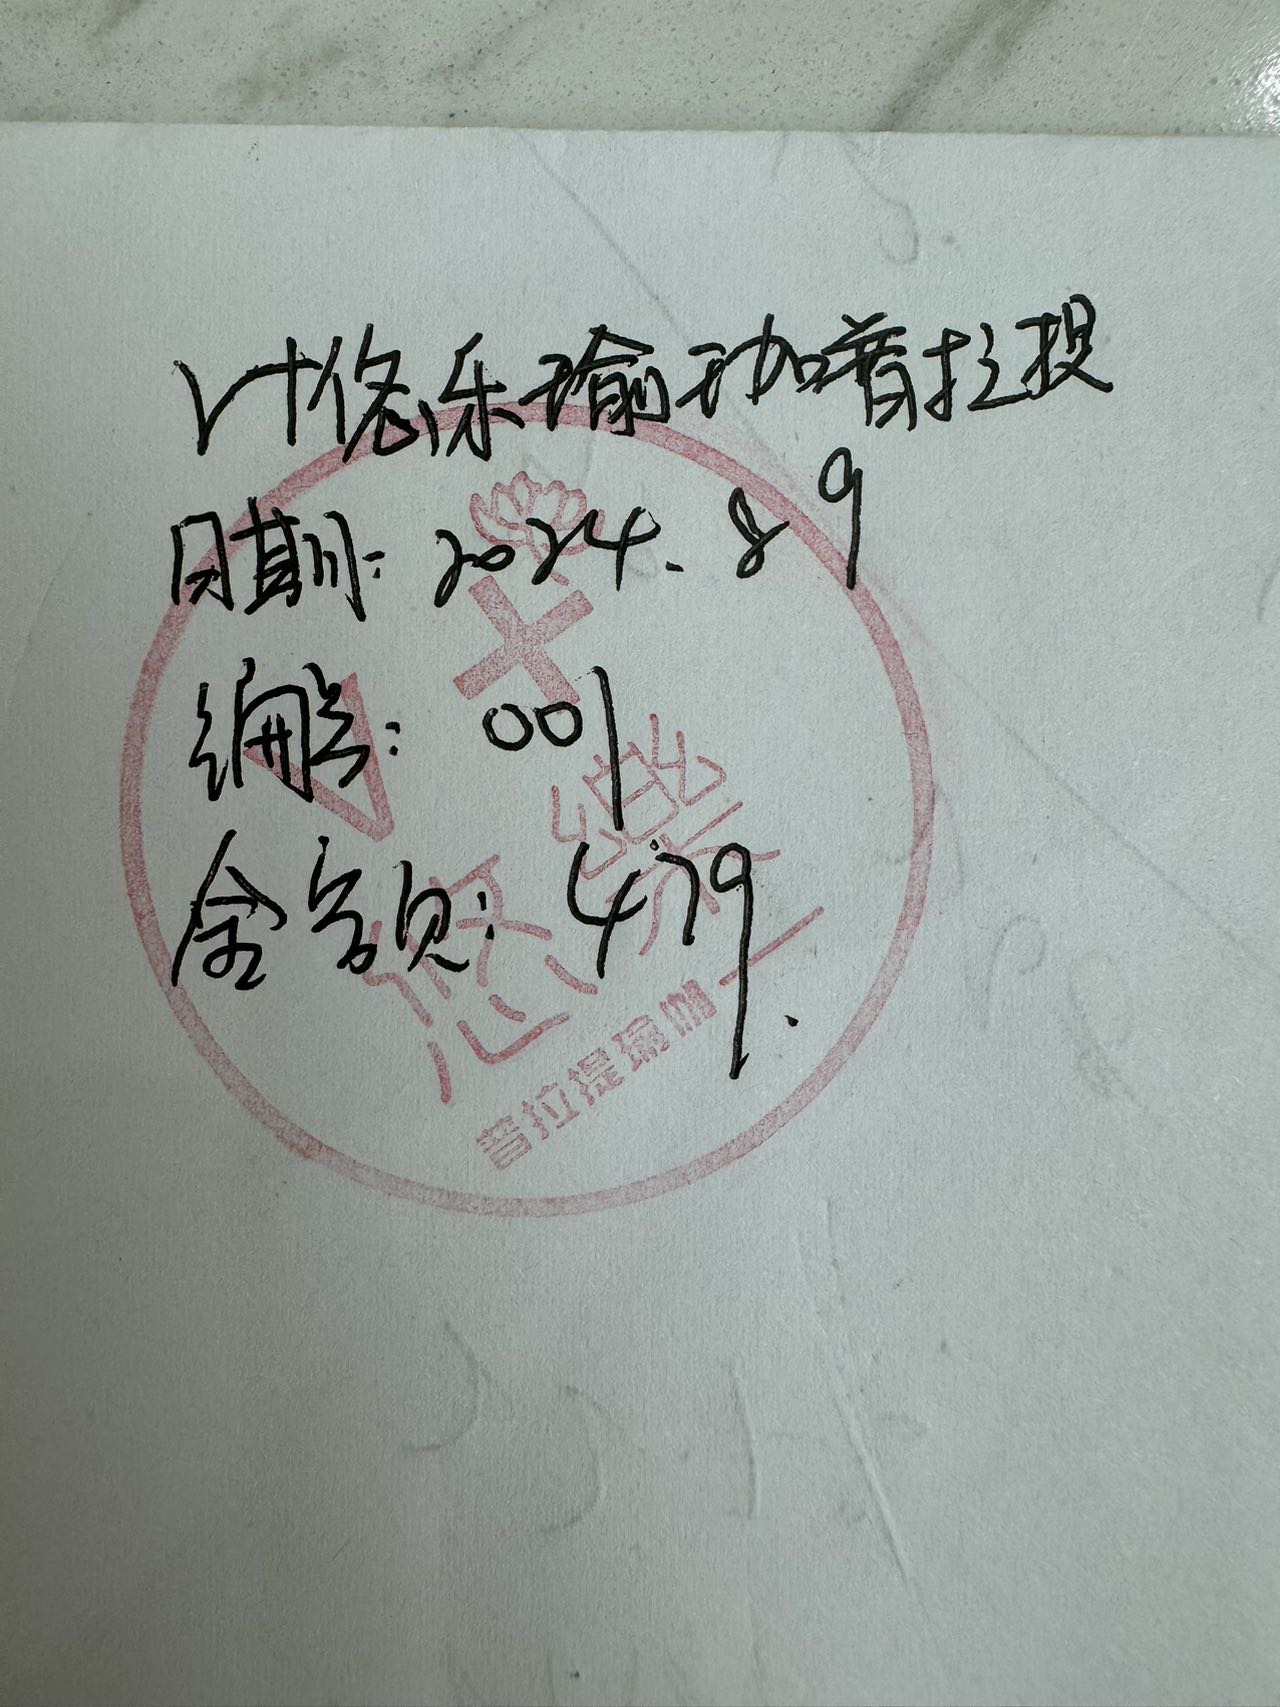 V+悠乐瑜珈普拉提
日期: 2024.8 9
编号: 001
金额: 479.
V+
悠樂
普拉提瑜伽